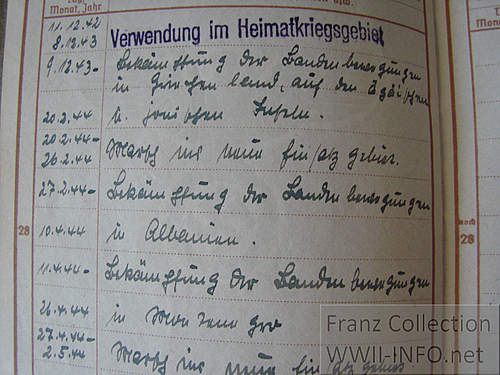 Monat, Jahr
11.12.42 Verwendung im Heimatkriegsgebiet
8.12.43
9.12.43- Bekämpfung der Bandenbewegungen
in Griechenland, auf den Ägäischen
20.2.44 u. jonischen Inseln.
20.2.44-
26.2.44 Marsch ins neue Einsatzgebiet.
27.2.44- Bekämpfung der Bandenbewegungen
28 10.4.44 in Albanien.
11.4.44- Bekämpfung der Bandenbewegungen
26.4.44 in Montenegro
27.4.44-
2.5.44 Marsch ins neue Einsatzgebiet.
noch
28
Franz Collection
WWII-INFO.net